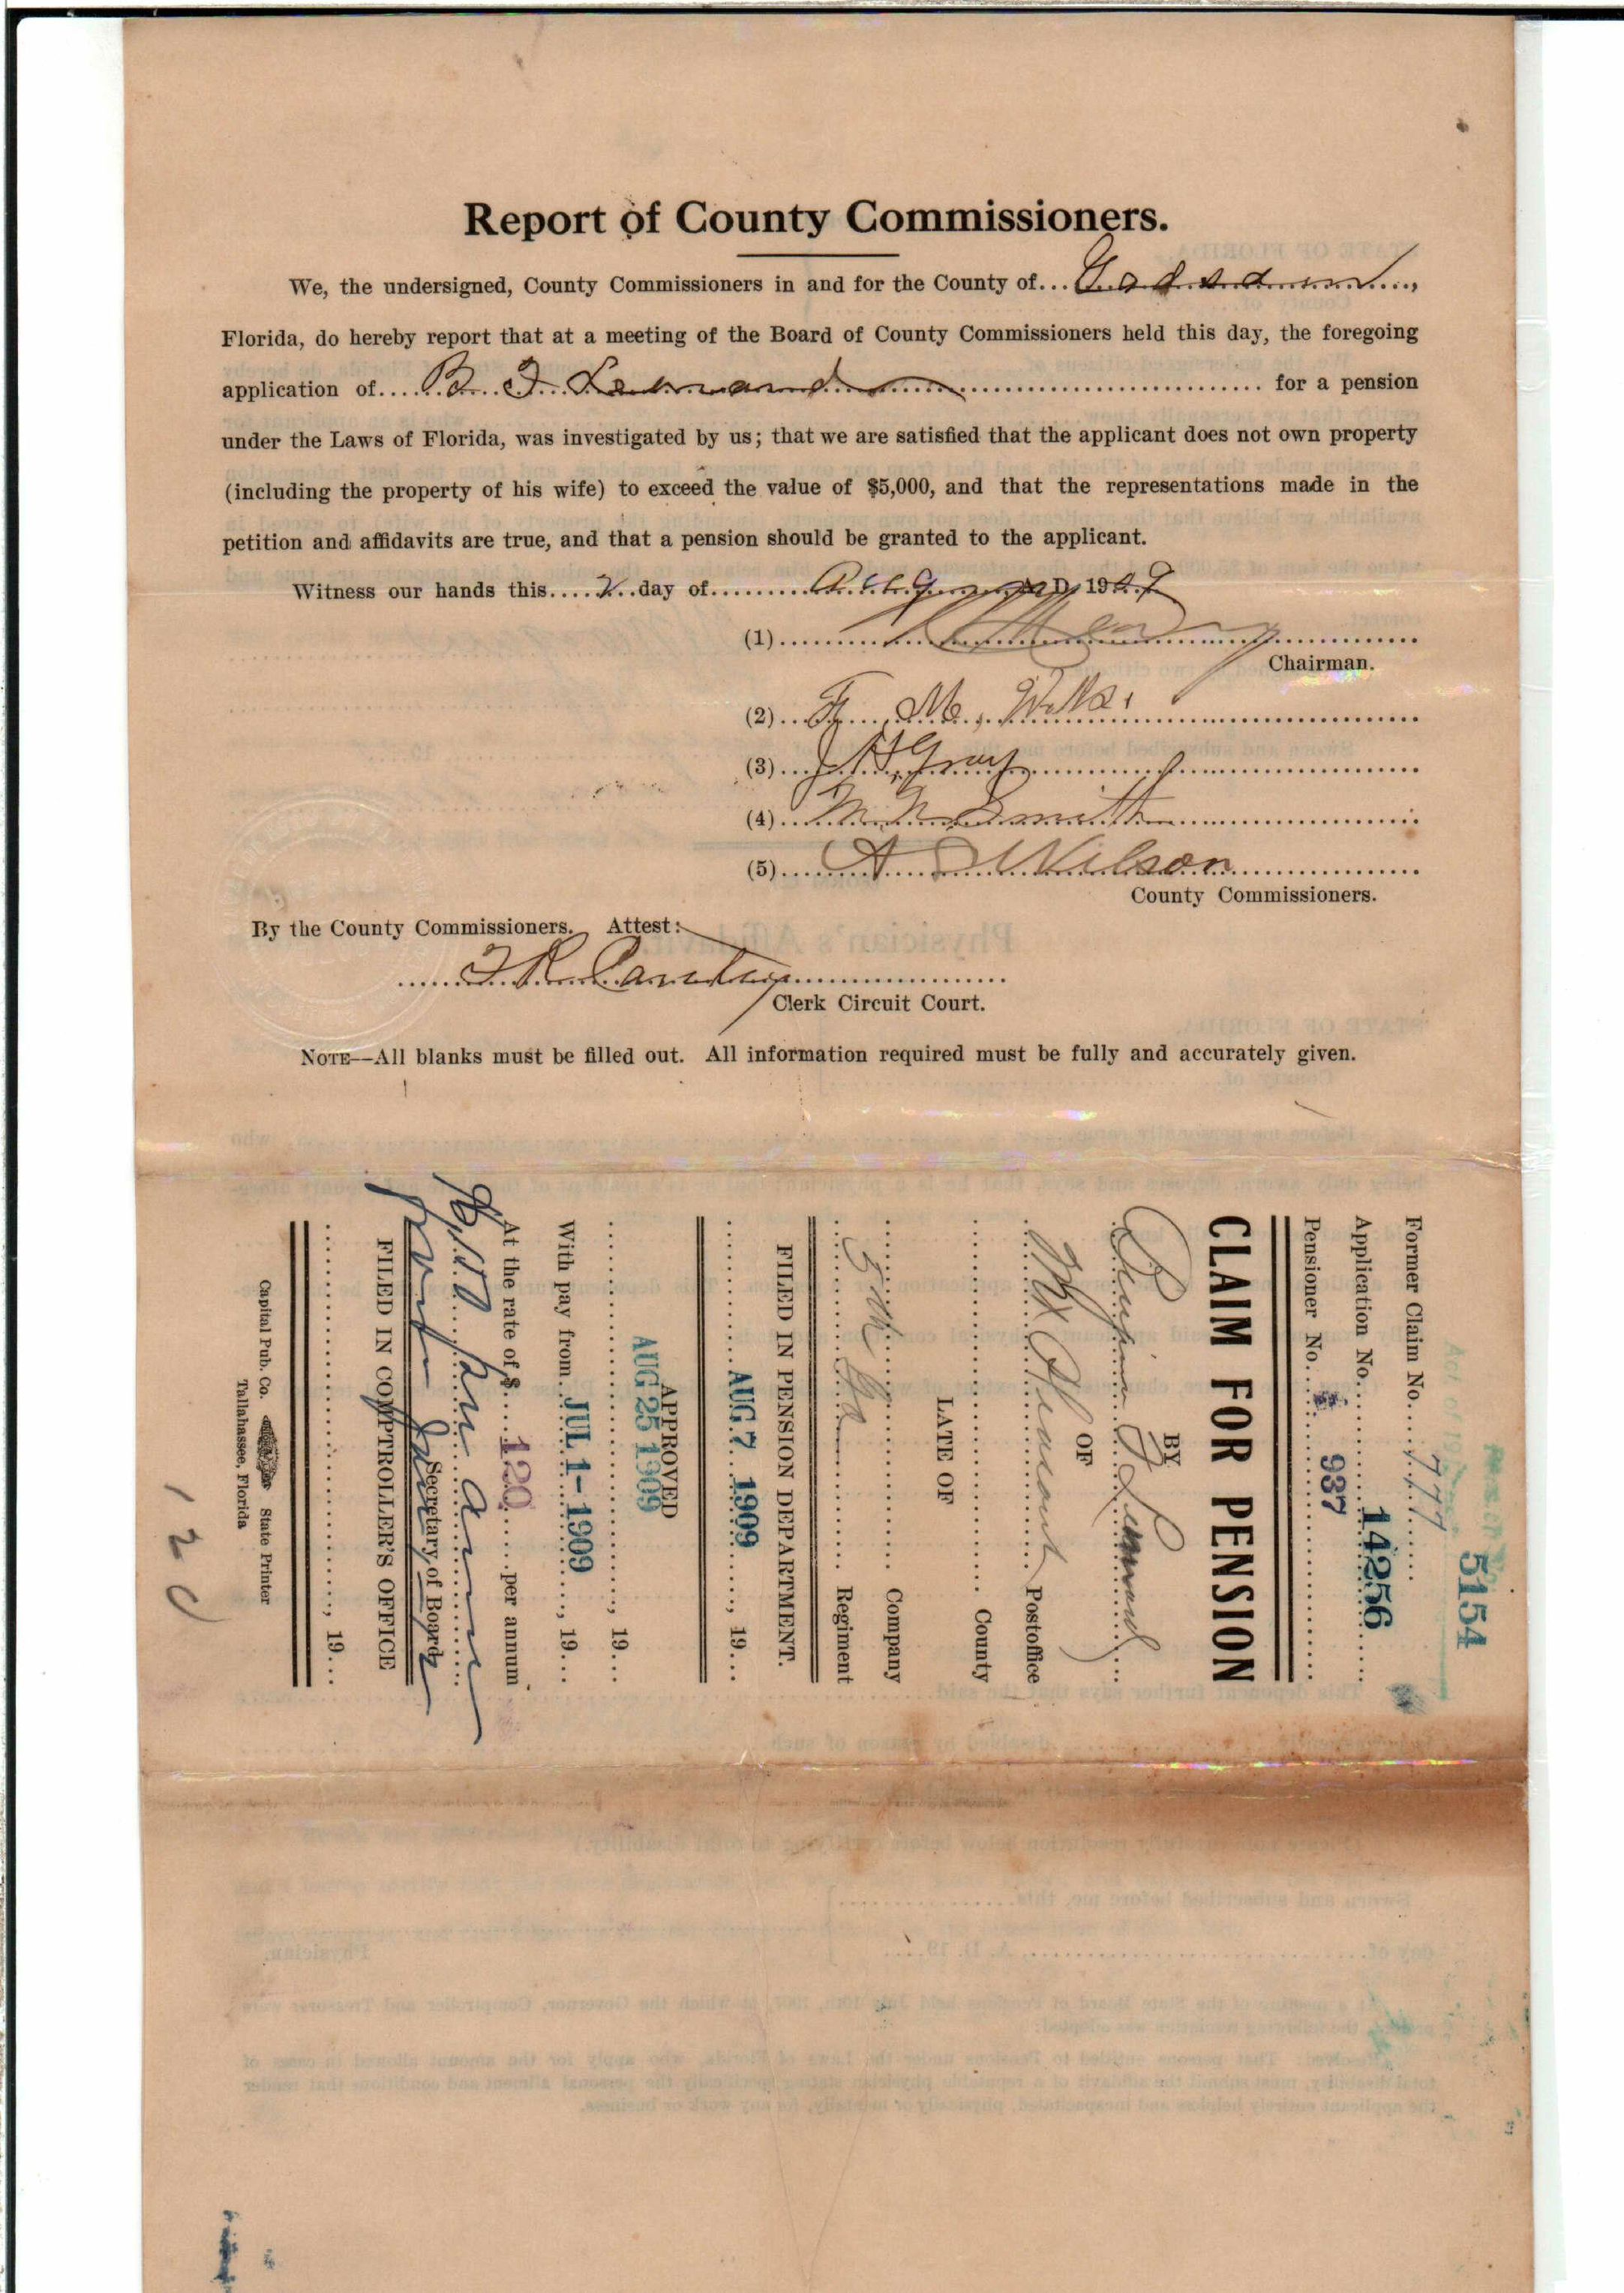 Report of County Commissioners.
We, the undersigned, County Commissioners in and for the County of... Gadsden ...,
Florida, do hereby report that at a meeting of the Board of County Commissioners held this day, the foregoing
application of.... B. F. Leonard .... for a pension
under the Laws of Florida, was investigated by us; that we are satisfied that the applicant does not own property
(including the property of his wife) to exceed the value of $5,000, and that the representations made in the
petition and affidavits are true, and that a pension should be granted to the applicant.
Witness our hands this.... 2 ..day of........ August A. D. 1909
(1)
Chairman.
(2).. F. M. 
(3).. J H Gray
(4).. Smith
(5).... A D Wilson
County Commissioners.
By the County Commissioners. Attest:
Clerk Circuit Court.
NOTE—All blanks must be filled out. All information required must be fully and accurately given.
5154
Former Claim No.... 777
Application No.... 14256
Pensioner No.... 937
CLAIM FOR PENSION
BY
Benjamin F Leonard
OF
Mt Pleasant Postoffice
County
LATE OF
Company
5th Ga Regiment
FILED IN PENSION DEPARTMENT.
AUG 7 1909 , 19...
APPROVED
AUG 25 1909 , 19...
With pay from.. JUL 1- 1909 , 19...
At the rate of $.... 120 ....per annum
Secretary of Board
FILED IN COMPTROLLER'S OFFICE
, 19...
Capital Pub. Co. State Printer
Tallahassee, Florida
120